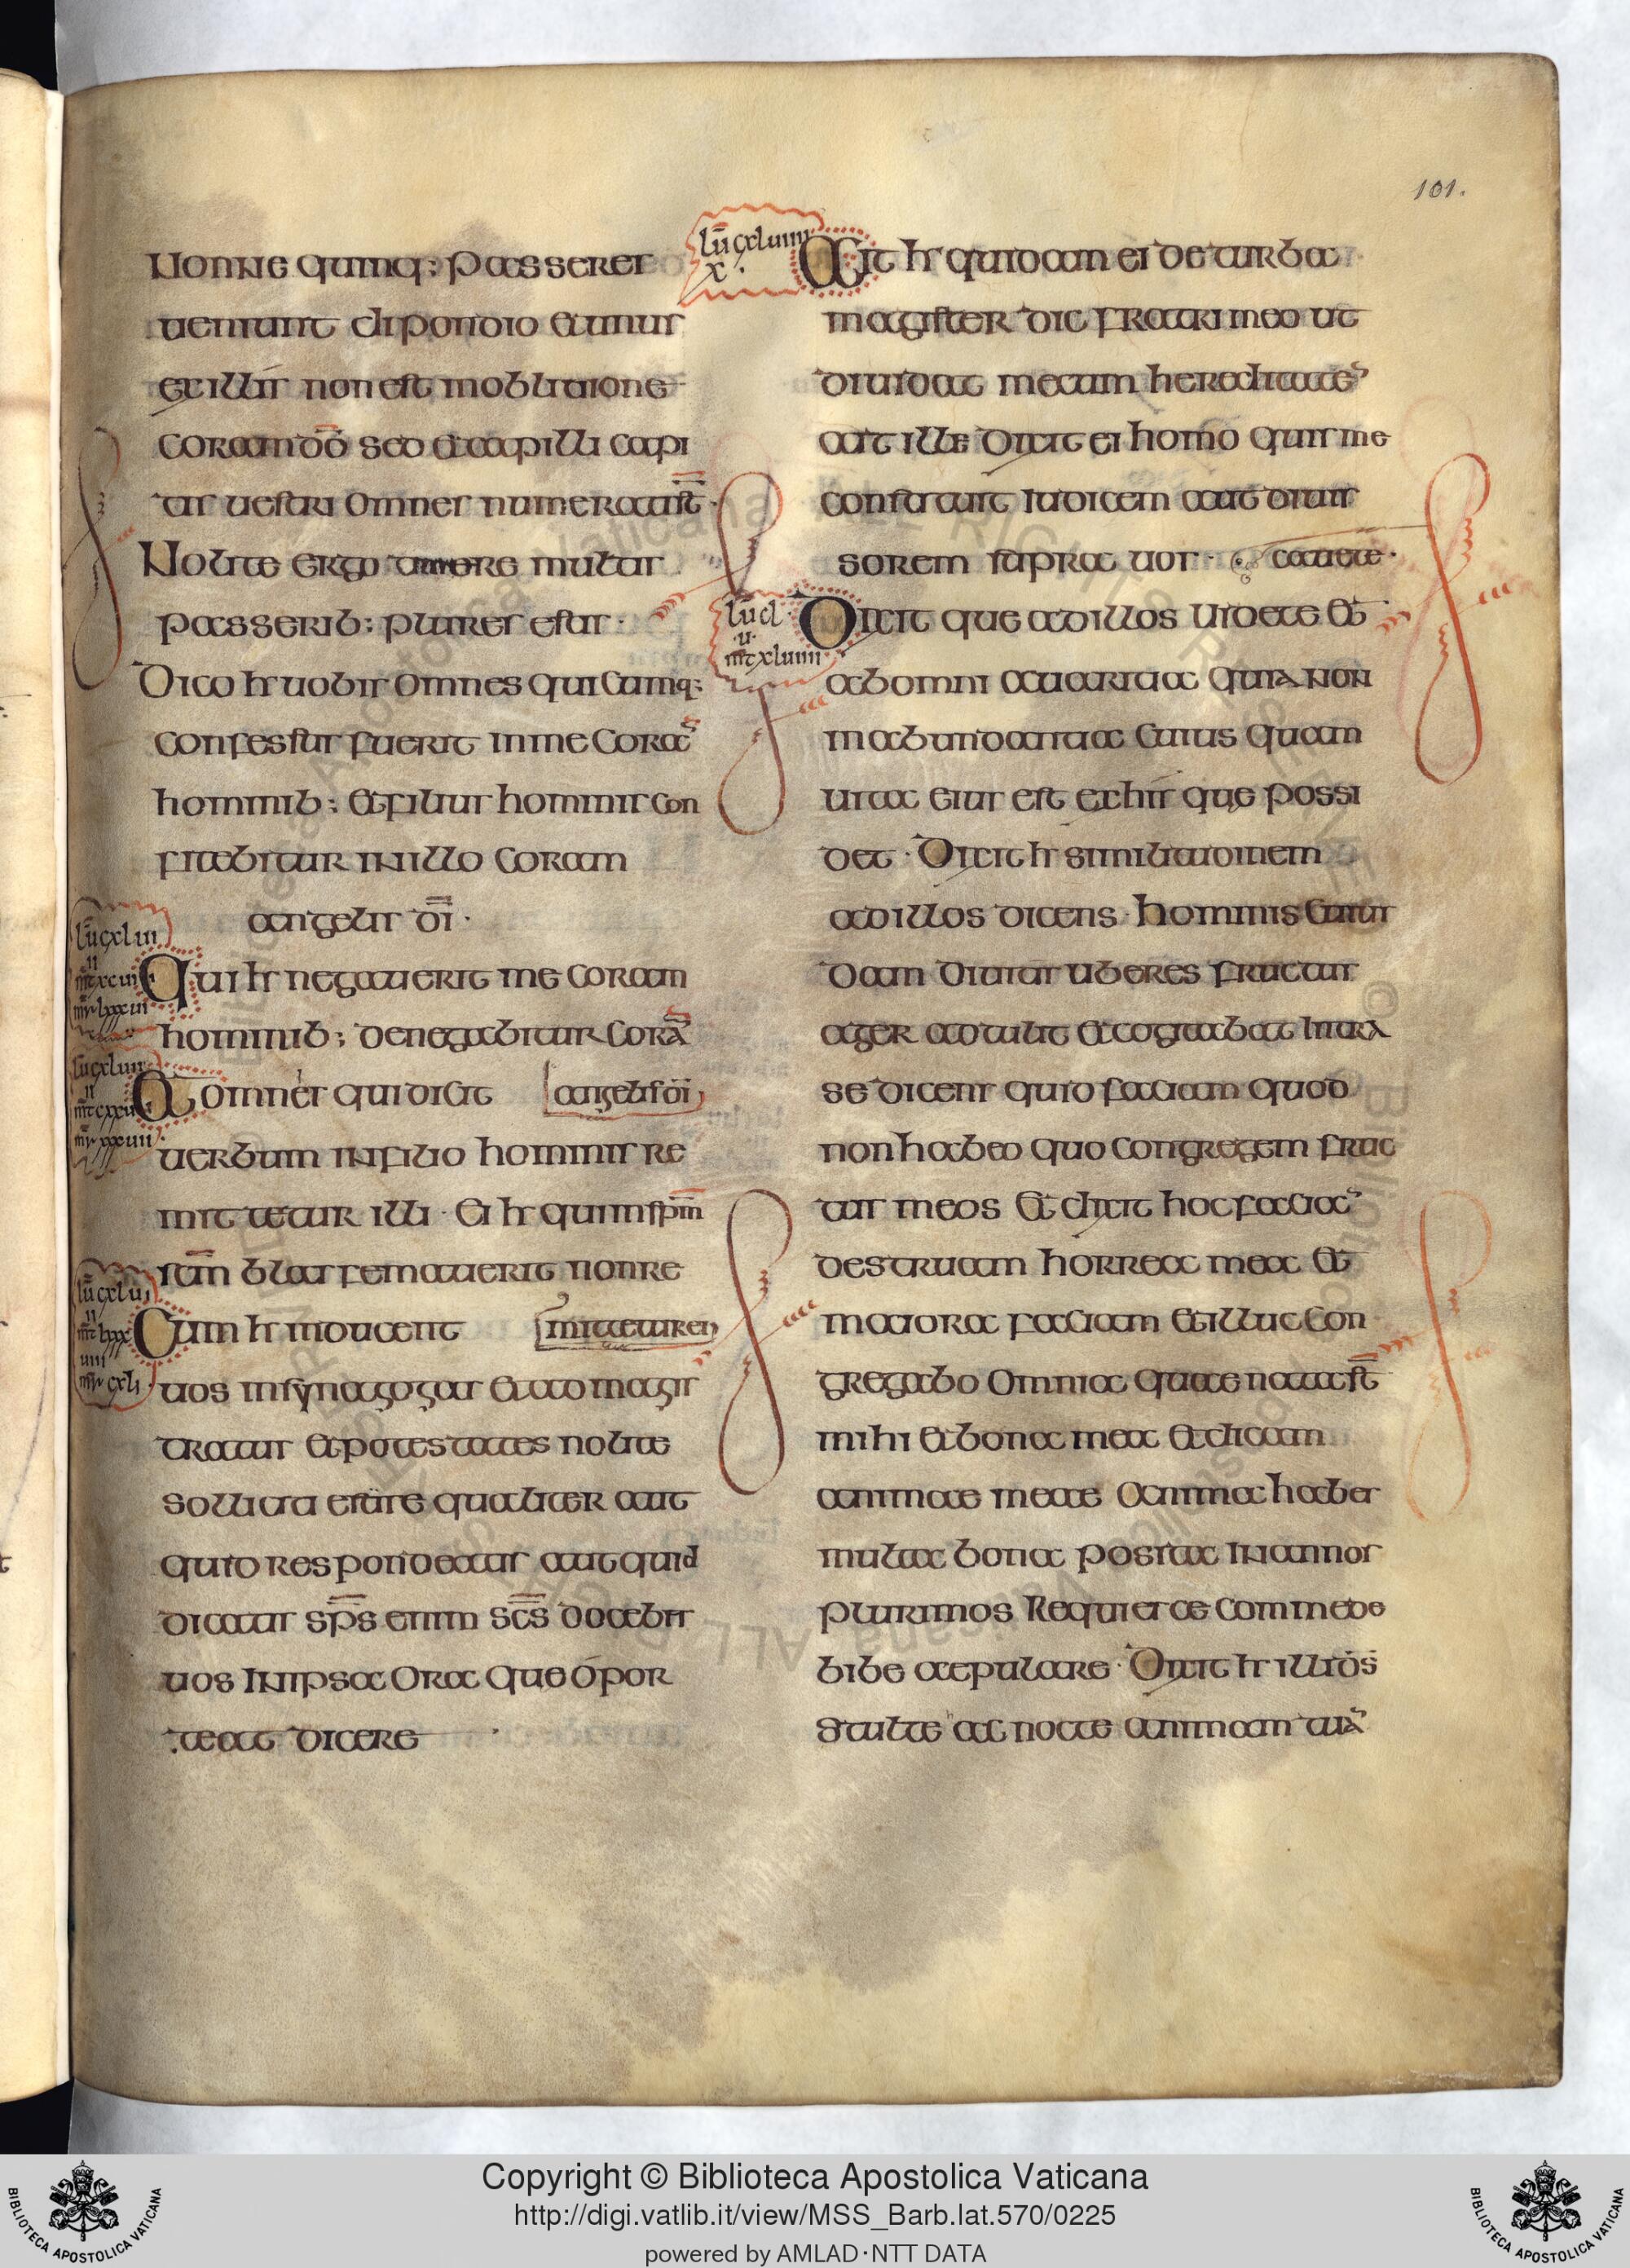 101.
nonne quinq; passeres
ueniunt dipondio et unus
ex illis non est in obliuione
coram dō sed et capilli capi
tis uestri omnes numerati st̄ ·
Nolite ergo timere multis
passerib; plures estis ·
Dico hr uobis omnes qui cumq;
confessus fuerit in me corā
hominib; et filius hominis con
fitebitur in illo coram
angelis dī ·
lū cxluii
ii
mt xcuii
mr lxxxui
Qui hr negauerit me coram
hominib; denegabitur corā
lū cxluii
ii
mt cxxiii
mr xxxuii
Et omnes qui dicit angelis dī
uerbum in filio hominis re
mittetur illi · Ei hr qui in spm̄
scm̄ blasfemauerit non re
lū cxlui
ii
mt lxxx
uiii
mr cxli
Cum hr inducent mittetur ei
uos in synagogas et ad magis
tratus et potestates nolite
solliciti esse qualiter aut
quid respondeatis aut quid
dicatis sp̄s enim sc̄s docebit
uos in ipsa ora que opor
teat dicere
lū cxluiiii
x ·
Ait hr quidam ei de turba
magister dic fratri meo ut
diuidat mecum hereditatē
at ille dixit ei homo quis me
constituit iudicem aut diui
sorem supra uos · cauete ·
lū cl ·
u ·
mt xluiiii
Dixit que ad illos uidete et
ab omni auaritia quia non
in abundantia cuius quam
uita eius est ex his que possi
det · Dixit hr similitudinem
ad illos dicens · hominis cuius
dam diuitis uberes fructus
ager adtulit et cogitabat intra
se dicens quid faciam quod
non habeo quo congregem fruc
tus meos et dixit hoc faciā
destruam horrea mea et
maiora faciam et illuc con
gregabo omnia quae nata st̄
mihi et bona mea et dicam
animae meae anima habes
multa bona posita in annos
plurimos requiesce commede
bibe aepulare · Dixit hr illi dš
Stulte hac nocte animam tuā
Copyright © Biblioteca Apostolica Vaticana
http://digi.vatlib.it/view/MSS_Barb.lat.570/0225
powered by AMLAD·NTT DATA
BIBLIOTECA APOSTOLICA VATICANA
BIBLIOTECA APOSTOLICA VATICANA